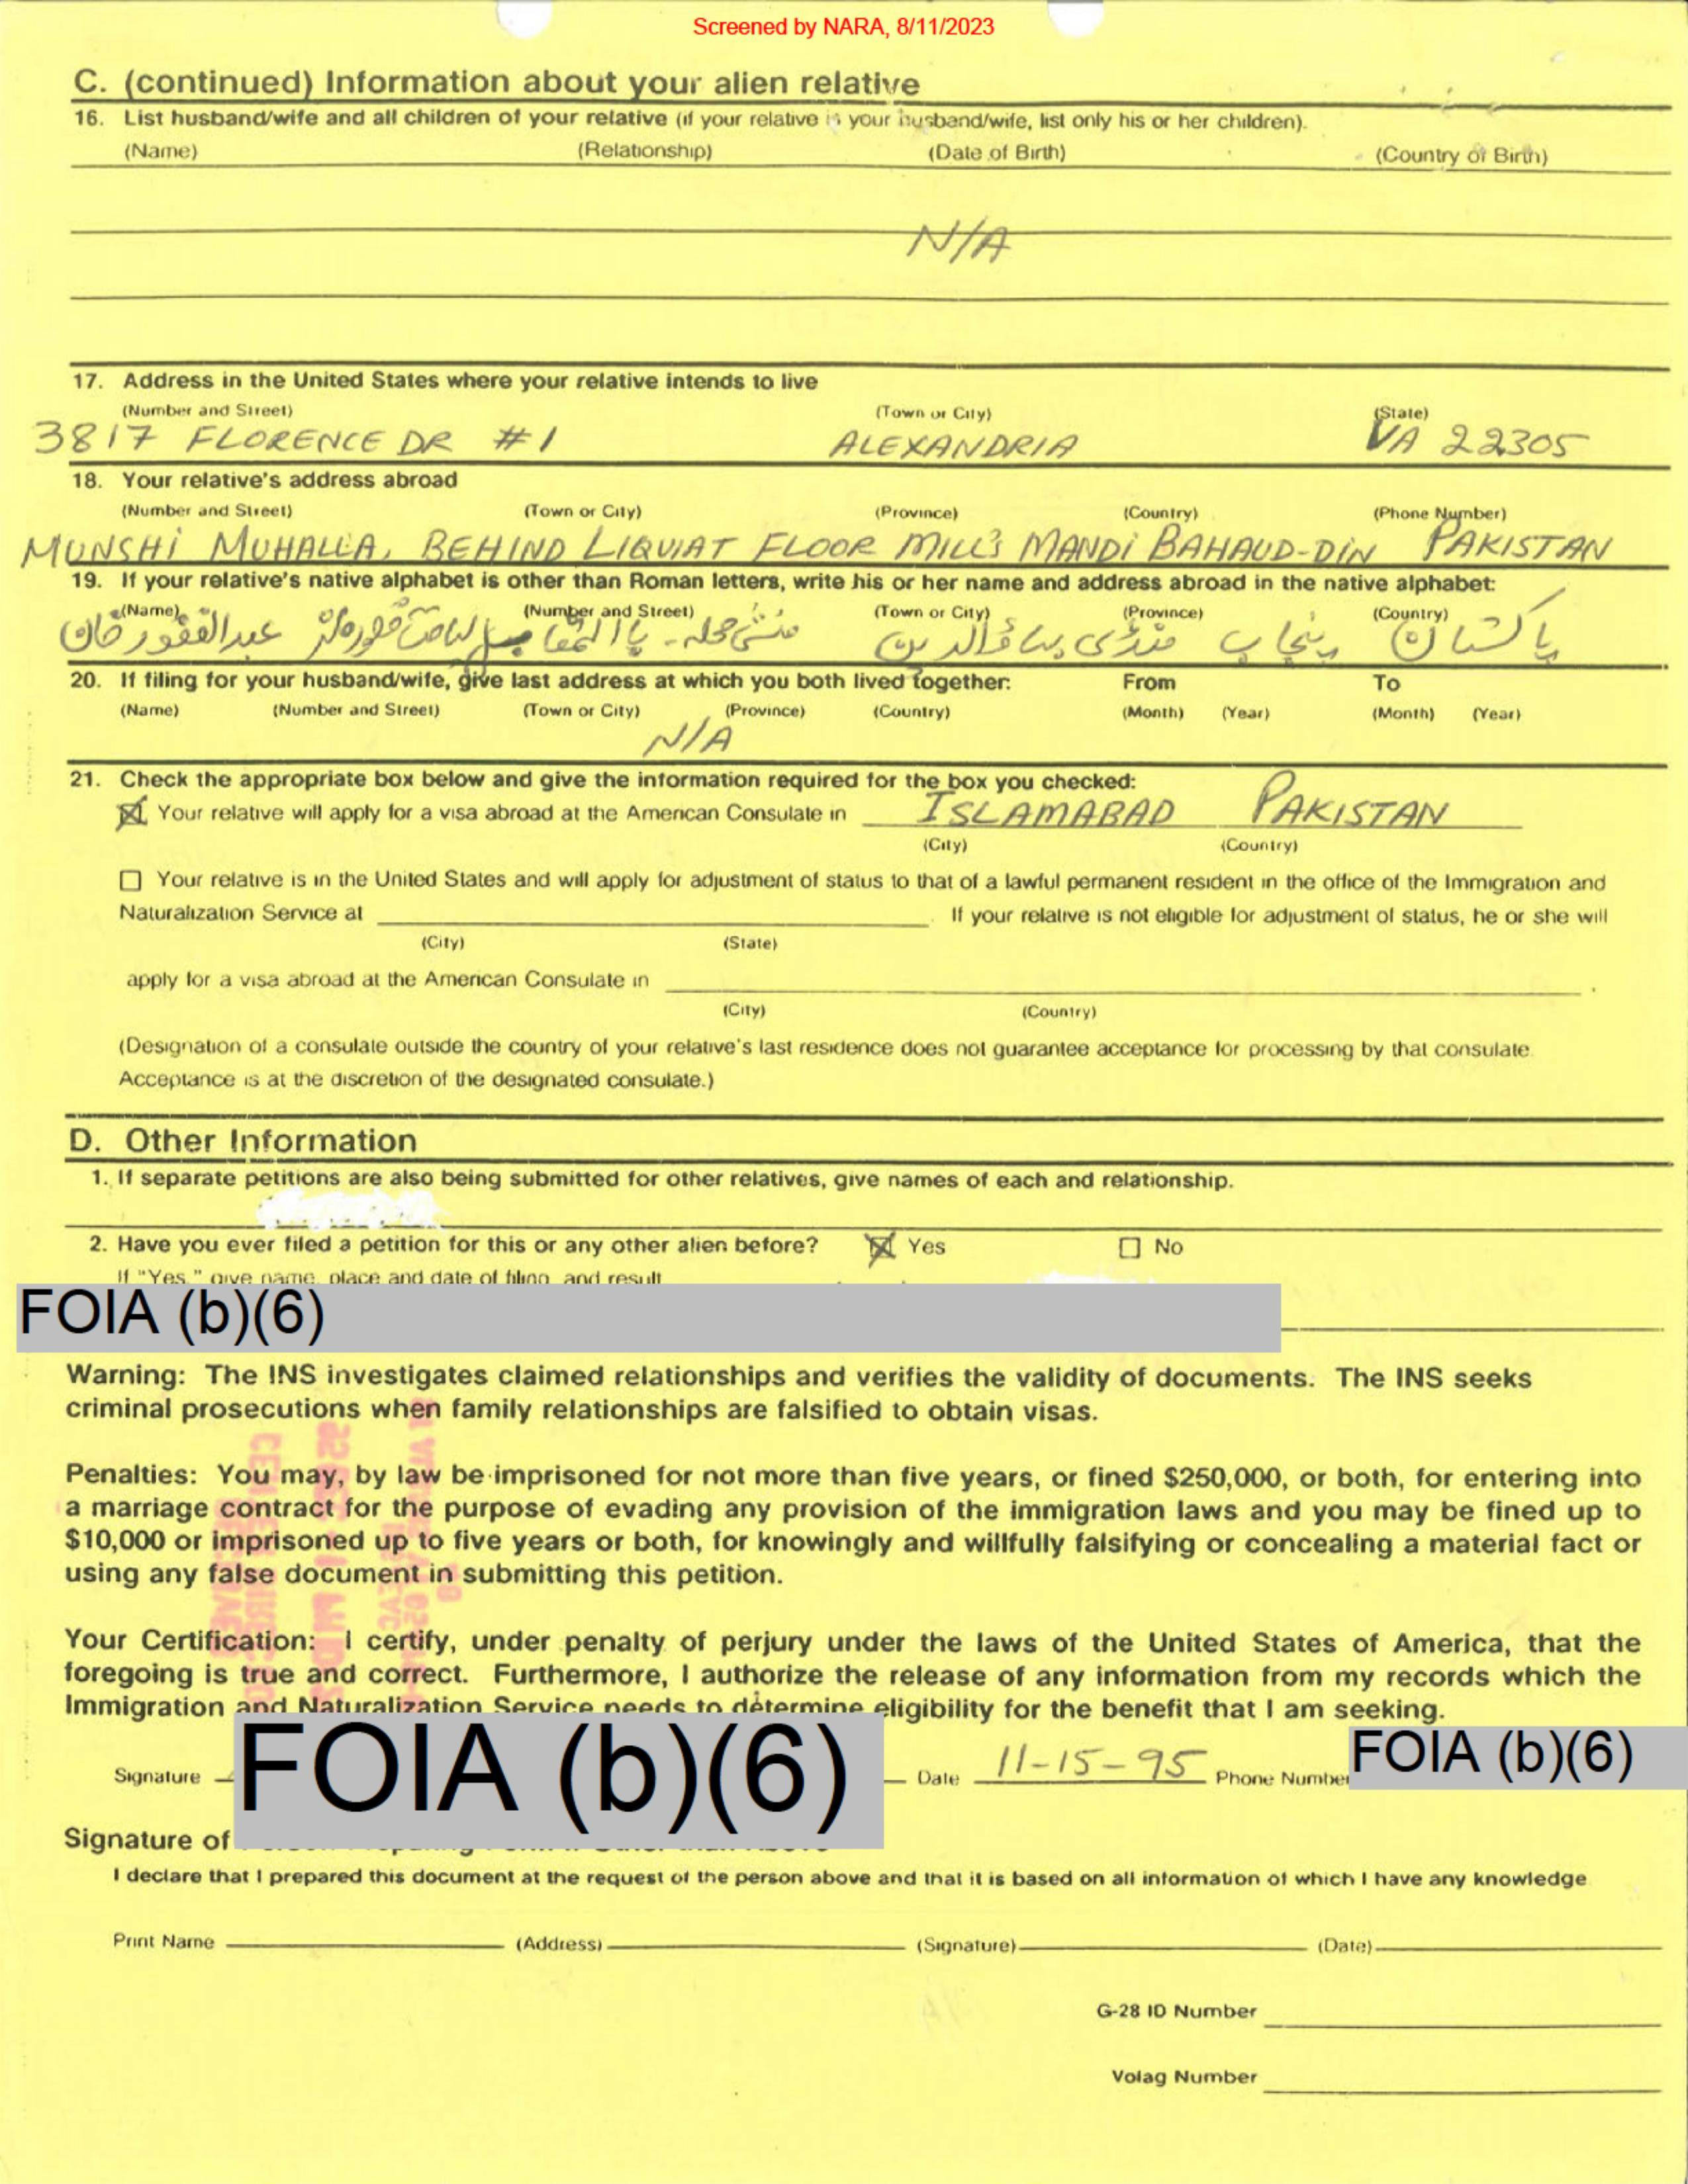 Screened by NARA, 8/11/2023
C. (continued) Information about your alien relative
16. List husband/wife and all children of your relative (if your relative is your husband/wife, list only his or her children).
(Name) (Relationship) (Date of Birth) (Country of Birth)
N/A
17. Address in the United States where your relative intends to live
(Number and Street) (Town or City) (State)
3817 FLORENCE DR #1 ALEXANDRIA VA 22305
18. Your relative's address abroad
(Number and Street) (Town or City) (Province) (Country) (Phone Number)
MUNSHI MUHALLA, BEHIND LIQUIAT FLOOR MILL'S MANDI BAHAUD-DIN PAKISTAN
19. If your relative's native alphabet is other than Roman letters, write his or her name and address abroad in the native alphabet:
(Name) (Number and Street) (Town or City) (Province) (Country)
عبدالغفور خان منشی محلہ۔ منڈی بہاؤالدین پنجاب پاکستان
20. If filing for your husband/wife, give last address at which you both lived together: From To
(Name) (Number and Street) (Town or City) (Province) (Country) (Month) (Year) (Month) (Year)
N/A
21. Check the appropriate box below and give the information required for the box you checked:
Your relative will apply for a visa abroad at the American Consulate in ISLAMABAD PAKISTAN
(City) (Country)
Your relative is in the United States and will apply for adjustment of status to that of a lawful permanent resident in the office of the Immigration and
Naturalization Service at . If your relative is not eligible for adjustment of status, he or she will
(City) (State)
apply for a visa abroad at the American Consulate in .
(City) (Country)
(Designation of a consulate outside the country of your relative's last residence does not guarantee acceptance for processing by that consulate.
Acceptance is at the discretion of the designated consulate.)
D. Other Information
1. If separate petitions are also being submitted for other relatives, give names of each and relationship.
2. Have you ever filed a petition for this or any other alien before? Yes No
If "Yes," give name, place and date of filing, and result
FOIA (b)(6)
Warning: The INS investigates claimed relationships and verifies the validity of documents. The INS seeks
criminal prosecutions when family relationships are falsified to obtain visas.
Penalties: You may, by law be imprisoned for not more than five years, or fined $250,000, or both, for entering into
a marriage contract for the purpose of evading any provision of the immigration laws and you may be fined up to
$10,000 or imprisoned up to five years or both, for knowingly and willfully falsifying or concealing a material fact or
using any false document in submitting this petition.
Your Certification: I certify, under penalty of perjury under the laws of the United States of America, that the
foregoing is true and correct. Furthermore, I authorize the release of any information from my records which the
Immigration and Naturalization Service needs to determine eligibility for the benefit that I am seeking.
Signature FOIA (b)(6) Date 11-15-95 Phone Number FOIA (b)(6)
Signature of
I declare that I prepared this document at the request of the person above and that it is based on all information of which I have any knowledge
Print Name (Address) (Signature) (Date)
G-28 ID Number
Volag Number